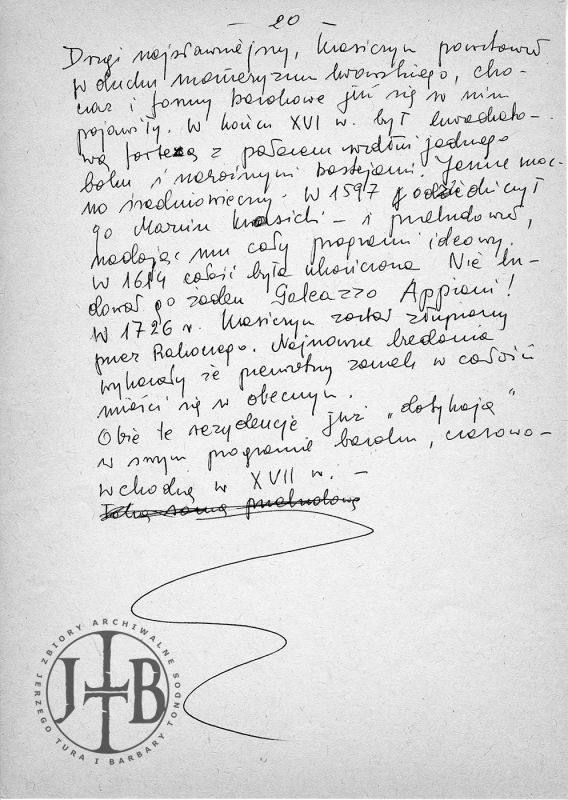 — 20 —
Drugi najsławniejszy, Krasiczyn powstawał
w duchu manieryzmu lwowskiego, cho-
ciaż i formy barokowe już się w nim
pojawiły. W końcu XVI w. był kwadrato-
wą fortecą z pałacem wzdłuż jednego
boku i narożnymi bastejami. Jeszcze moc-
no średniowieczny. W 1597 odziedziczył
go Marcin Krasicki – i przebudował,
nadając mu cały program ideowy.
W 1614 całość była ukończona Nie bu-
dował go żaden Galeazzo Appiani!
W 1726 r. Krasiczyn został złupiony
przez Rakoczego. Najnowsze badania
wykazały że pierwotny zamek w całości
mieści się w obecnym.
Obie te rezydencje już „dotykają”
w swym programie baroku, czasowo –
wchodzą w XVII w. –
przebudową
ZBIORY ARCHIWALNE
JERZEGO TURA I BARBARY TONDOS
J B